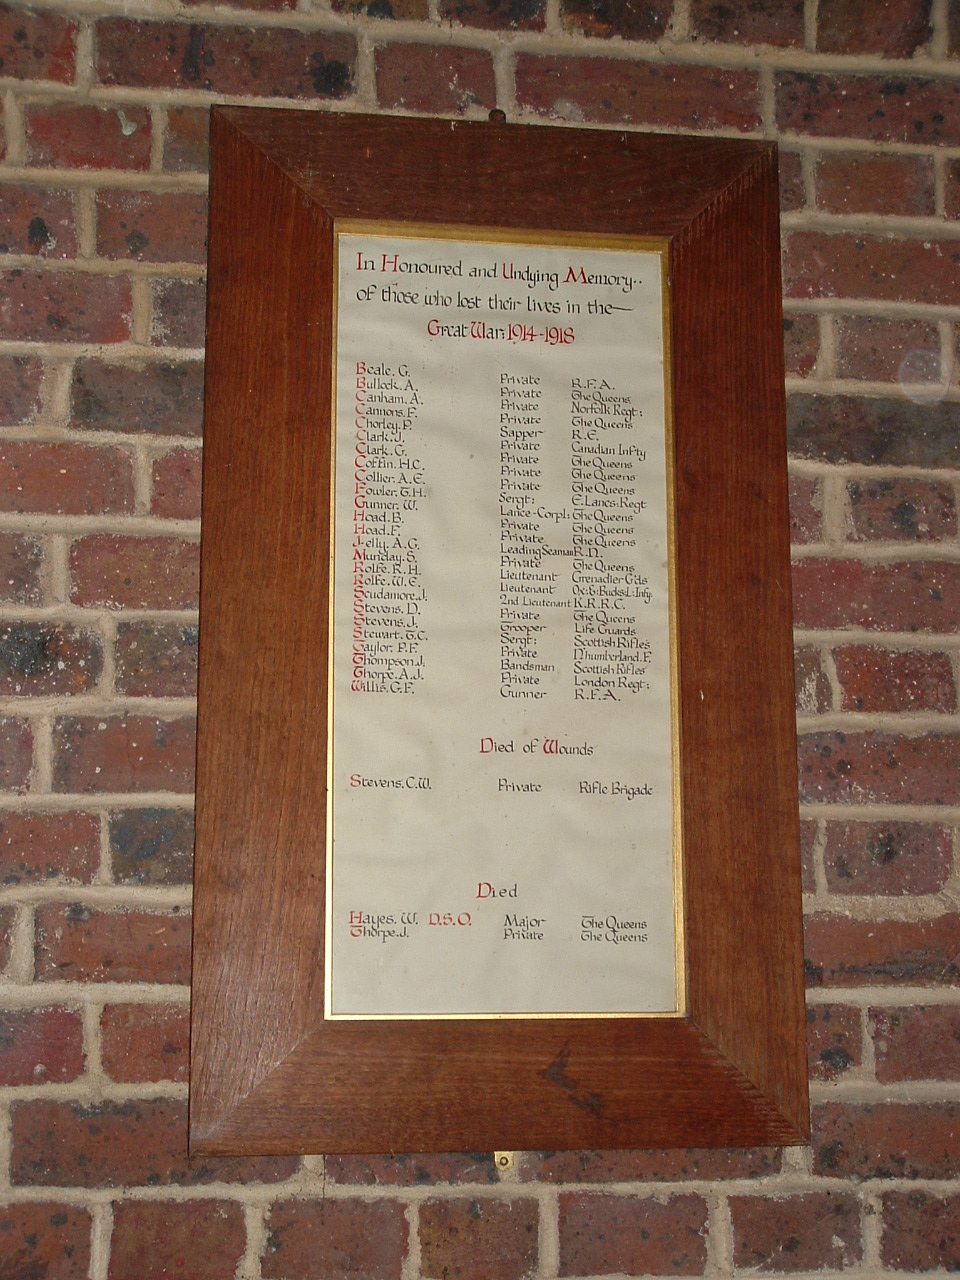 In Honoured and Undying Memory..
of those who lost their lives in the
Great War: 1914-1918
Beale. G. Private R.F.A.
Bullock. A. Private The Queens
Canham. A. Private Norfolk Regt:
Cannons. F. Private The Queens
Chorley. P. Sapper R.E.
Clark. J. Private Canadian Infty
Clark. G. Private The Queens
Coffin. H.C. Private The Queens
Collier. A.E. Private The Queens
Fowler. T.H. Sergt: E.Lancs: Regt
Gunner. W. Lance-Corpl: The Queens
Hoad. B. Private The Queens
Hoad. F. Private The Queens
Jelly. A.G. Leading Seaman R.N.
Munday. S. Private The Queens
Rolfe. R.H. Lieutenant Grenadier G'ds
Rolfe. W.E. Lieutenant Ox: & Bucks: L: Infy.
Scudamore. J. 2nd Lieutenant K.R.R.C.
Stevens. D. Private The Queens
Stevens. J. Trooper Life Guards
Stewart. T.C. Sergt: Scottish Rifles
Taylor. P.F. Private N'humberland. F.
Thompson. J. Bandsman Scottish Rifles
Thorpe. A.J. Private London Regt:
Willis. G.F. Gunner R.F.A.
Died of Wounds
Stevens. C.W. Private Rifle Brigade
Died
Hayes. W. D.S.O. Major The Queens
Thorpe. J. Private The Queens